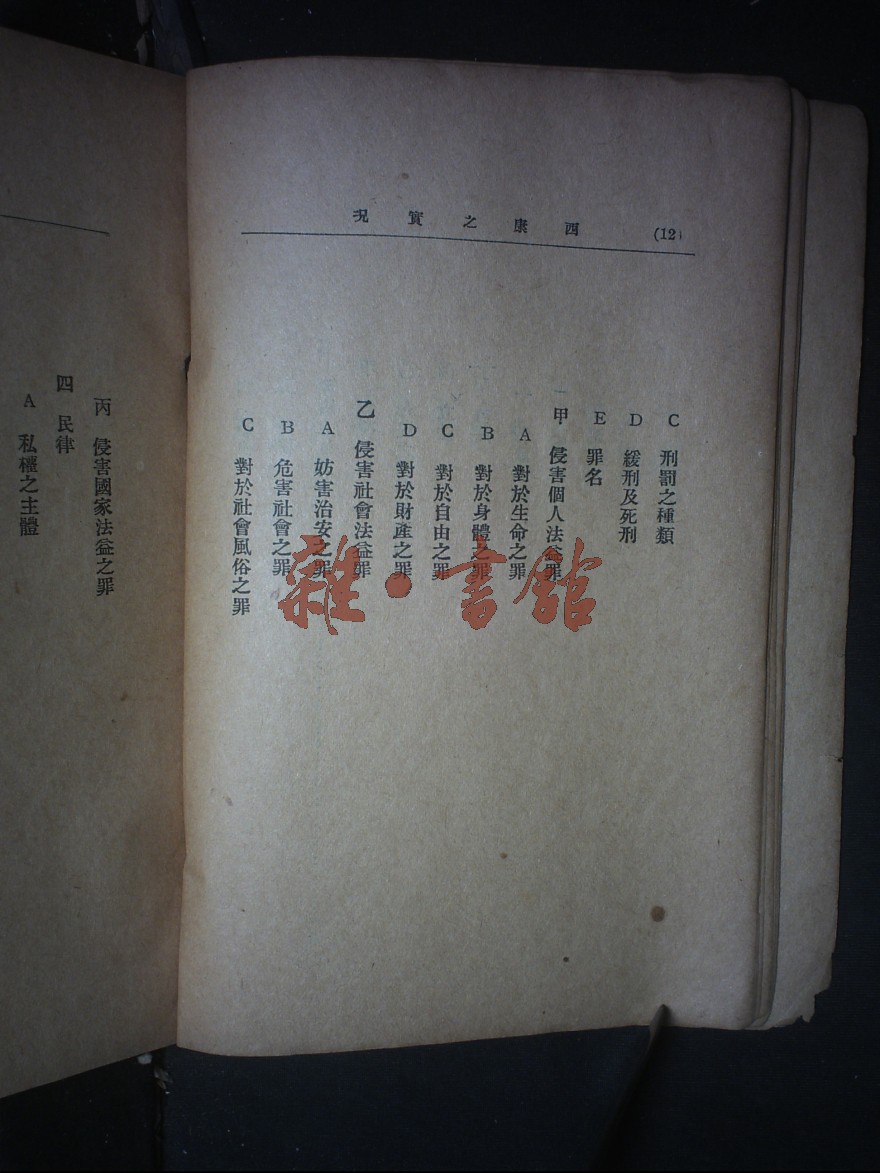 西康之實況 (12)
C 刑罰之種類
D 緩刑及死刑
E 罪名
甲 侵害個人法益罪
A 對於生命之罪
B 對於身體之罪
C 對於自由之罪
D 對於財產之罪
乙 侵害社會法益罪
A 妨害治安之罪
B 危害社會之罪
C 對於社會風俗之罪
丙 侵害國家法益之罪
四 民律
A 私權之主體
雜·書館